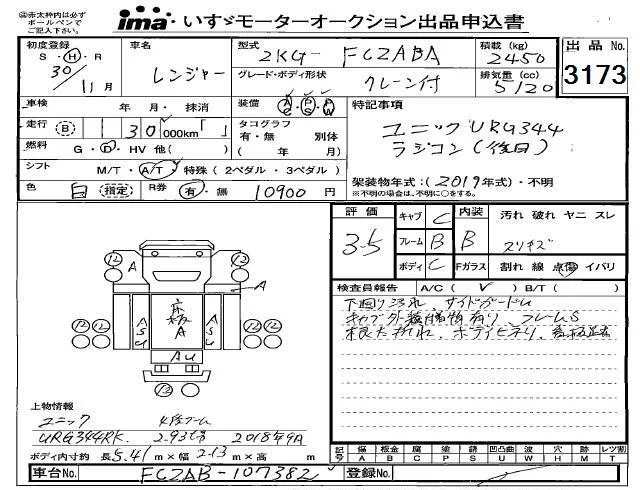 ㊟赤太枠内は必ず
ボールペンで
ご記入下さい。
ima いすゞモーターオークション出品申込書
初度登録 S・H・R 30/11月
車名 レンジャー
型式 2KG- FC2ABA
積載 (kg) 2450
出品 No. 3173
グレード・ボディ形状 クレーン付
排気量 (cc) 5120
車検 年 月・抹消
装備 AC・PS・PW
特記事項
走行 (B) 130,000km「 」
タコグラフ 有・無 別体 ( 年 月)
ユニックURG344
ラジコン(後日)
燃料 G・D・HV 他( )
シフト M/T・A/T・特殊(2ペダル・3ペダル)
架装物年式:(2019年式)・不明
※不明の場合は、不明に○をする。
色 白 (指定) R券 有・無 10900円
評価 3-5
キャブ C 内装 B 汚れ 破れ ヤニ スレ
フレーム B スリキズ
ボディ C Fガラス 割れ 線 点傷 イバリ
検査員報告 A/C( ✓ ) B/T( )
下廻り汚れ、サイドガード凹
フレームS
12 A 12
A
12 12 ASU 床板A ASU 12 12
AU
12
上物情報
ユニック 4段ブーム
URG344RK 2.93t吊 2018年9A
ボディ内寸約 長5.41m×幅2.13m×高 m
記号 傷A 板金B 腐C 塗P 錆S 凹凸曲U 波W 穴H 跡M レツ割T
車台No. FC2AB-107382
登録No.